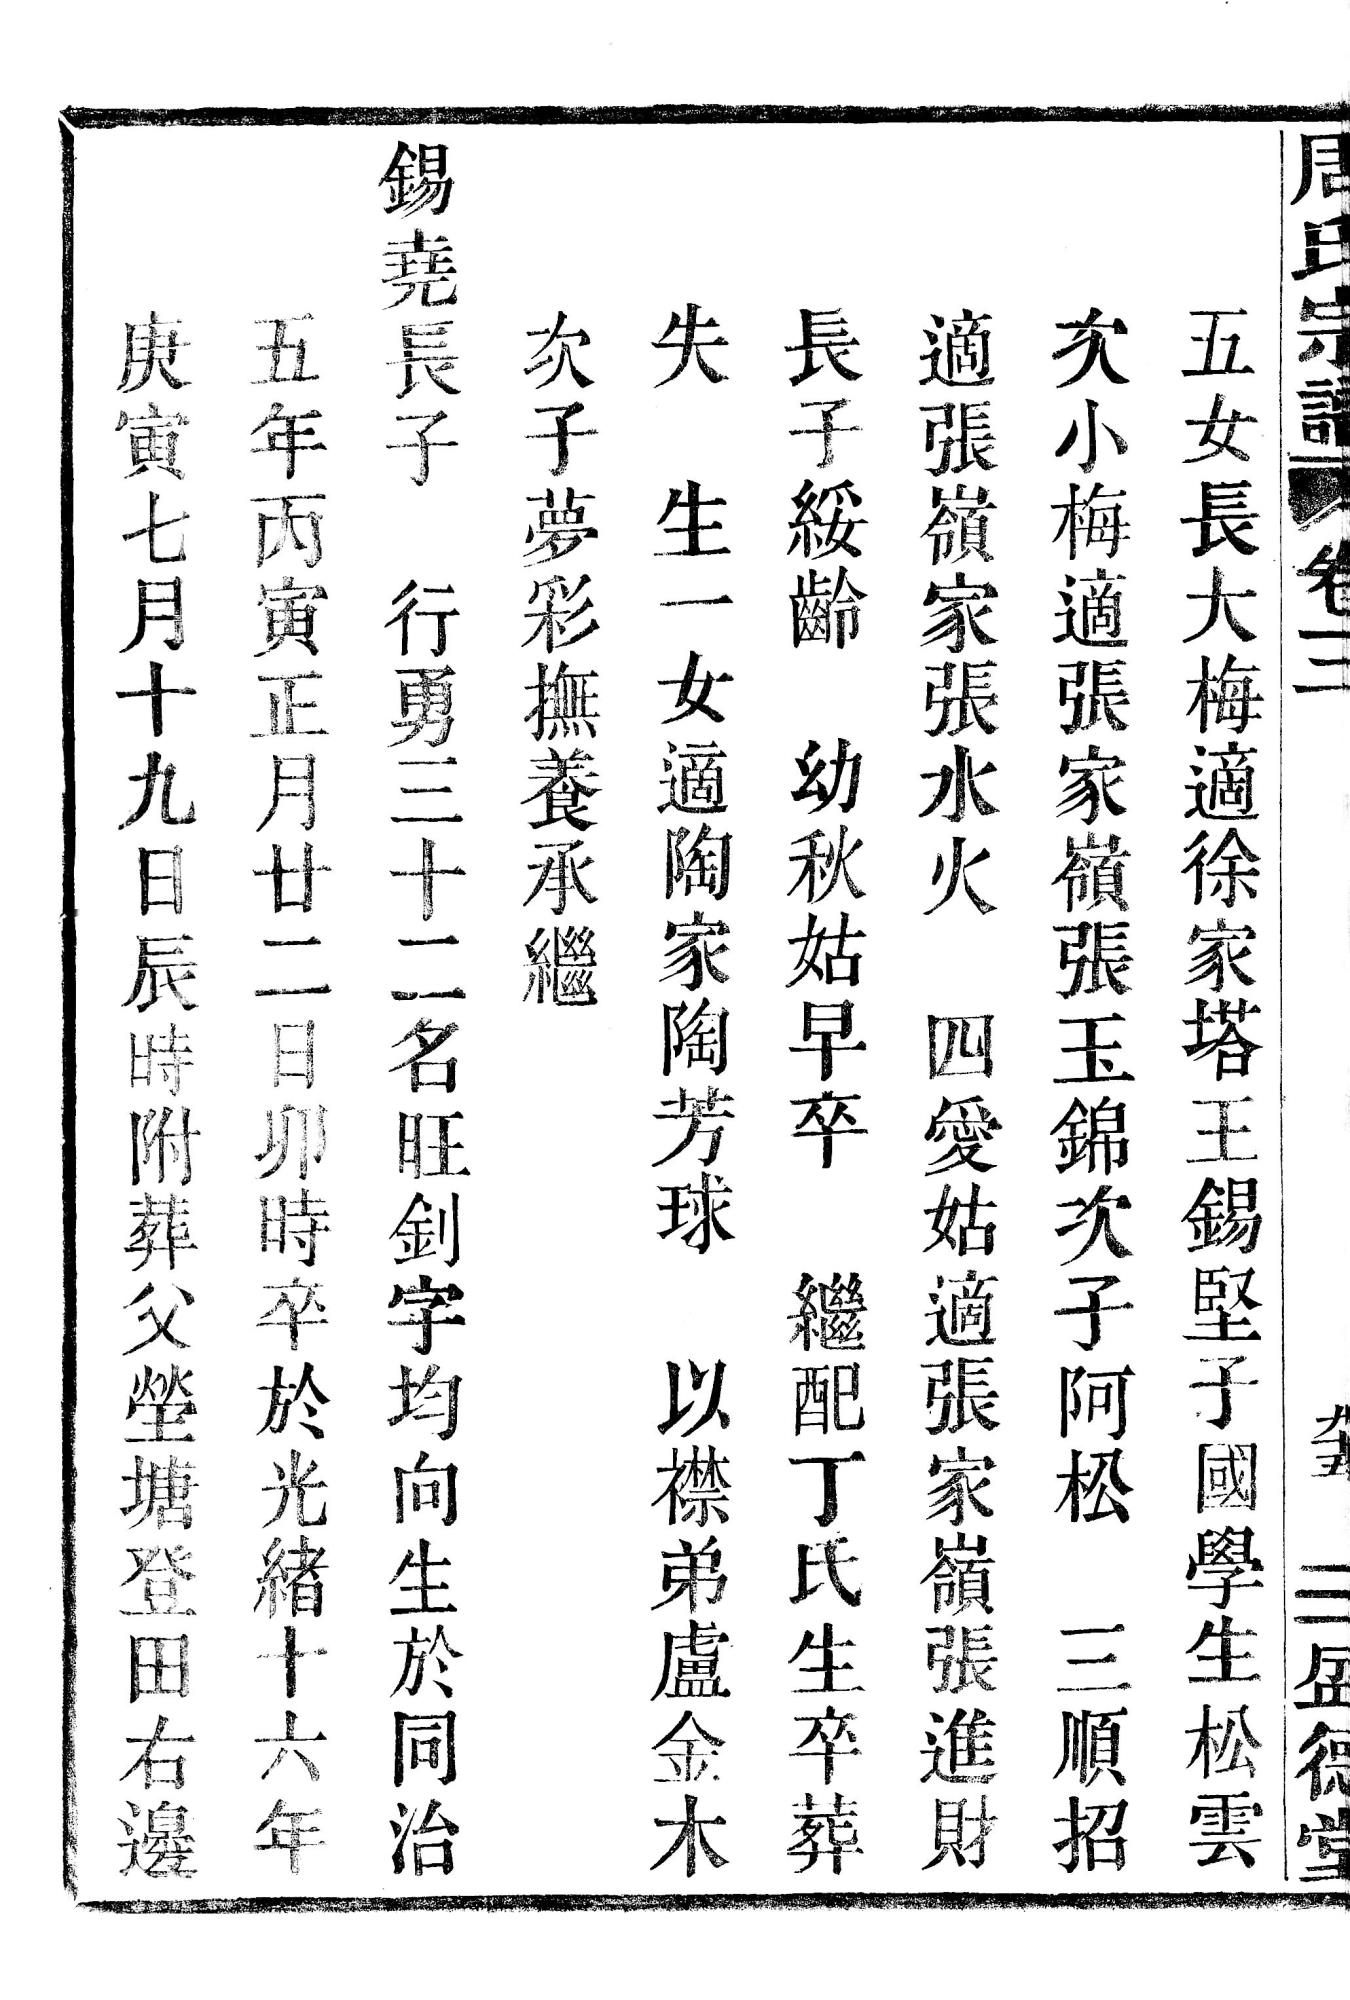 周氏宗譜 卷三 三 盈德堂
五女長大梅適徐家塔王錫堅子國學生松雲
次小梅適張家嶺張玉錦次子阿松 三順招
適張嶺家張水火 四愛姑適張家嶺張進財
長子綏齡 幼秋姑早卒 繼配丁氏生卒葬
失 生一女適陶家陶芳球 以襟弟盧金木
次子夢彩撫養承繼
錫堯長子 行勇三十二名旺釗字均向生於同治
五年丙寅正月廿二日卯時卒於光緒十六年
庚寅七月十九日辰時附葬父塋塘登田右邊